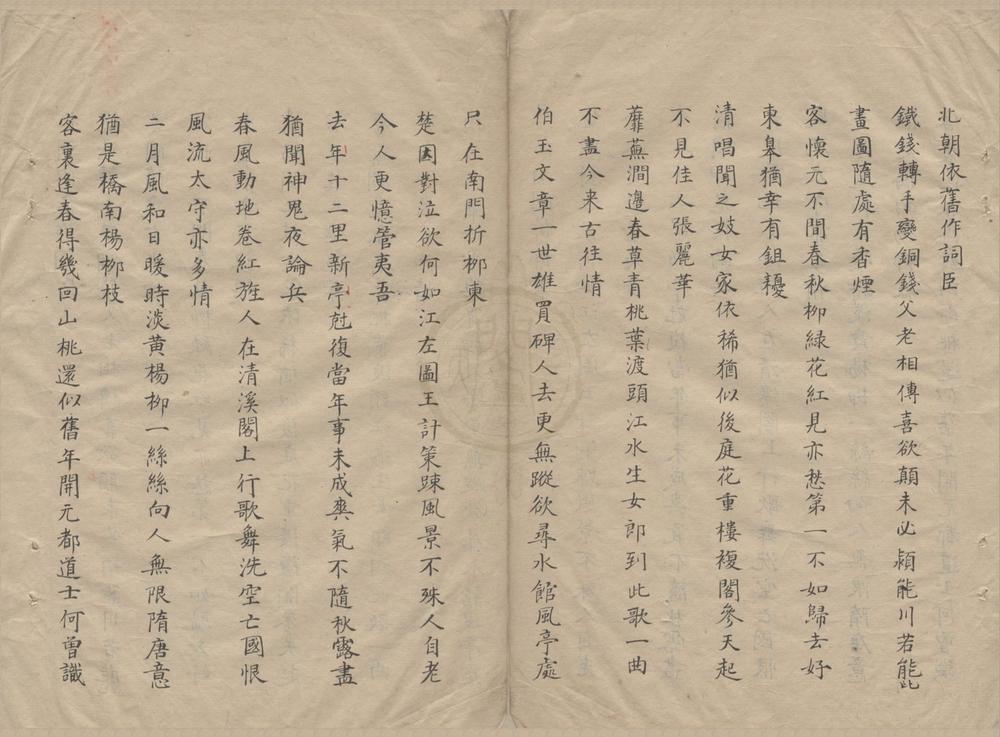 北朝依舊作詞臣
鐵錢轉手變銅錢父老相傳喜欲顛未必潁能川若能此
畫圖隨處有香煙
客懷元不間春秋柳綠花紅見亦愁第一不如歸去好
東皋猶幸有鉏耰
清唱聞之妓女家依稀猶似後庭花重樓複閣參天起
不見佳人張麗華
蘼蕪澗邊春草青桃葉渡頭江水生女郎到此歌一曲
不盡今来古往情
伯玉文章一世雄買碑人去更無蹤欲尋水館風亭處
只在南門折柳東
楚囚對泣欲何如江左圖王計策踈風景不殊人自老
今人更憶管夷吾
去年十二里新亭尅復當年事未成爽氣不隨秋露盡
猶聞神鬼夜論兵
春風動地卷紅旌人在清溪閣上行歌舞洗空亡國恨
風流太守亦多情
二月風和日暖時淡黄楊柳一絲絲向人無限隋唐意
猶是橋南楊柳枝
客裏逢春得幾回山桃還似舊年開元都道士何曾識